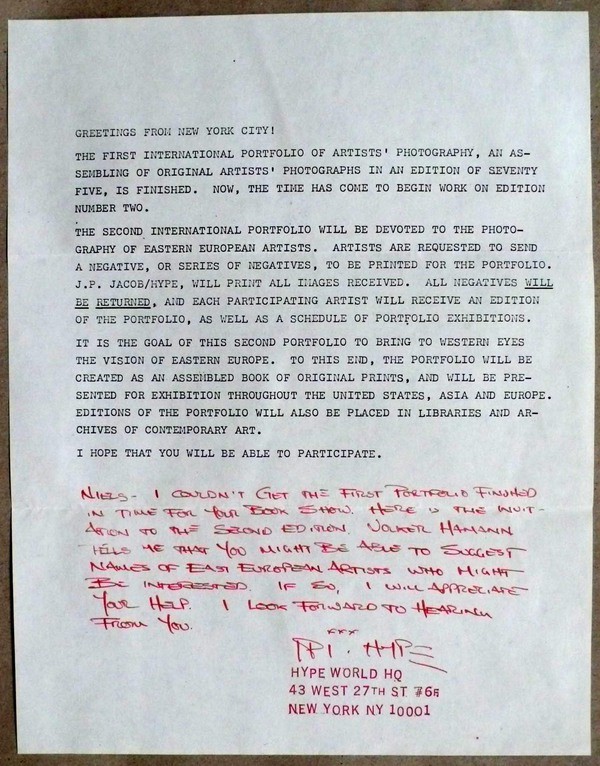 GREETINGS FROM NEW YORK CITY!
THE FIRST INTERNATIONAL PORTFOLIO OF ARTISTS' PHOTOGRAPHY, AN AS-
SEMBLING OF ORIGINAL ARTISTS' PHOTOGRAPHS IN AN EDITION OF SEVENTY
FIVE, IS FINISHED. NOW, THE TIME HAS COME TO BEGIN WORK ON EDITION
NUMBER TWO.
THE SECOND INTERNATIONAL PORTFOLIO WILL BE DEVOTED TO THE PHOTO-
GRAPHY OF EASTERN EUROPEAN ARTISTS. ARTISTS ARE REQUESTED TO SEND
A NEGATIVE, OR SERIES OF NEGATIVES, TO BE PRINTED FOR THE PORTFOLIO.
J.P. JACOB/HYPE, WILL PRINT ALL IMAGES RECEIVED. ALL NEGATIVES WILL
BE RETURNED, AND EACH PARTICIPATING ARTIST WILL RECEIVE AN EDITION
OF THE PORTFOLIO, AS WELL AS A SCHEDULE OF PORTFOLIO EXHIBITIONS.
IT IS THE GOAL OF THIS SECOND PORTFOLIO TO BRING TO WESTERN EYES
THE VISION OF EASTERN EUROPE. TO THIS END, THE PORTFOLIO WILL BE
CREATED AS AN ASSEMBLED BOOK OF ORIGINAL PRINTS, AND WILL BE PRE-
SENTED FOR EXHIBITION THROUGHOUT THE UNITED STATES, ASIA AND EUROPE.
EDITIONS OF THE PORTFOLIO WILL ALSO BE PLACED IN LIBRARIES AND AR-
CHIVES OF CONTEMPORARY ART.
I HOPE THAT YOU WILL BE ABLE TO PARTICIPATE.
NIELS - I COULDN'T GET THE FIRST PORTFOLIO FINISHED
IN TIME FOR YOUR BOOK SHOW. HERE IS THE INVIT-
ATION TO THE SECOND EDITION. VOLKER HAMANN
TELLS ME THAT YOU MIGHT BE ABLE TO SUGGEST
NAMES OF EAST EUROPEAN ARTISTS WHO MIGHT
BE INTERESTED. IF SO, I WILL APPRECIATE
YOUR HELP. I LOOK FORWARD TO HEARING
FROM YOU.
xxx
HYPE
HYPE WORLD HQ
43 WEST 27TH ST
NEW YORK NY 10001